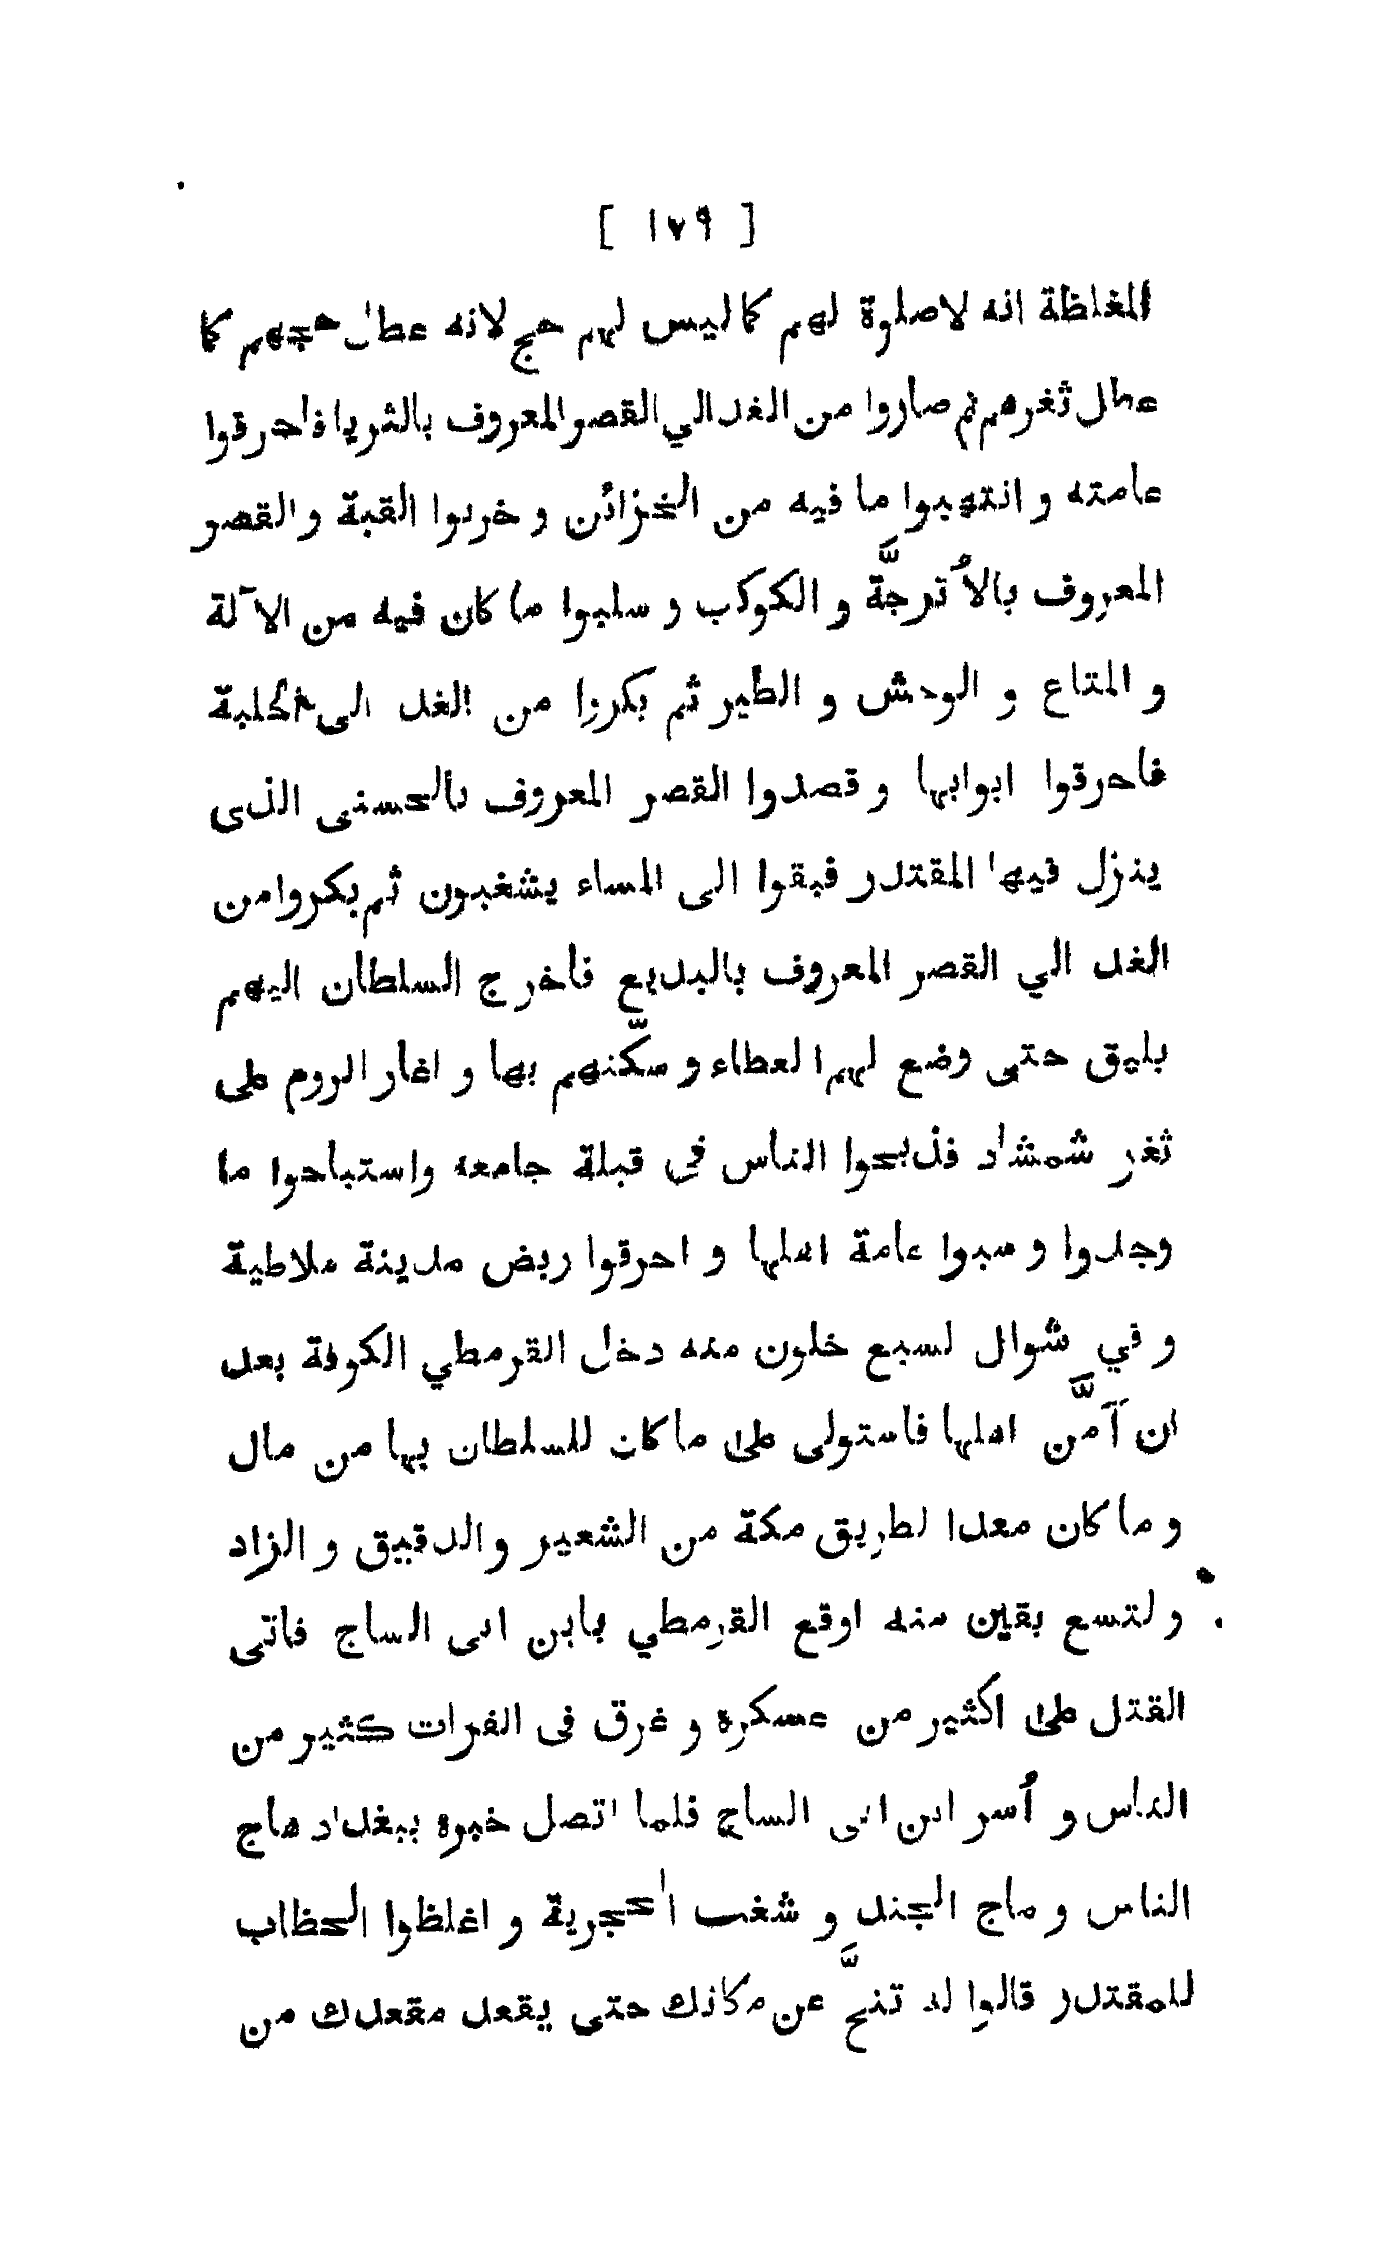 [ ١٧٩ ]
المغلظة انه لاصلوة لهم كما ليس لهم حج لانه عطل حجهم كما
عطل ثغرهم ثم صاروا من الغد الي القصر المعروف بالثريا فاحرقوا
عامته و انتهبوا ما فيه من الخزائن و خربوا القبة و القصر
المعروف بالاُترجَّة و الكوكب و سلبوا ما كان فيه من الآلة
و المتاع و الوحش و الطير ثم بكروا من الغد الى الحلبة
فاحرقوا ابوابها و قصدوا القصر المعروف بالحسنى الذى
ينزل فيها المقتدر فبقوا الى المساء يشغبون ثم بكروا من
الغد الي القصر المعروف بالبديع فاخرج السلطان اليهم
بليق حتى وضع لهم العطاء و سكّنهم بها و اغار الروم على
ثغر شمشاد فذبحوا الناس في قبلة جامعه واستباحوا ما
وجدوا و سبوا عامة اهلها و احرقوا ربض مدينة ملاطية
و في شوال لسبع خلون منه دخل القرمطي الكوفة بعد
ان آمَّن اهلها فاستولى على ما كان للسلطان بها من مال
و ما كان معدا لطريق مكة من الشعير والدقيق و الزاد
و لتسع بقين منه اوقع القرمطي بابن ابى الساج فاتى
القتل على اكثير من عسكره و غرق فى الفرات كثير من
الناس و اُسر ابن ابى الساج فلما اتصل خبره ببغداد هاج
الناس و ماج الجند و شغب الحجرية و اغلظوا الحظاب
للمقتدر قالوا له تنحَّ عن مكانك حتى يقعد مقعدك من